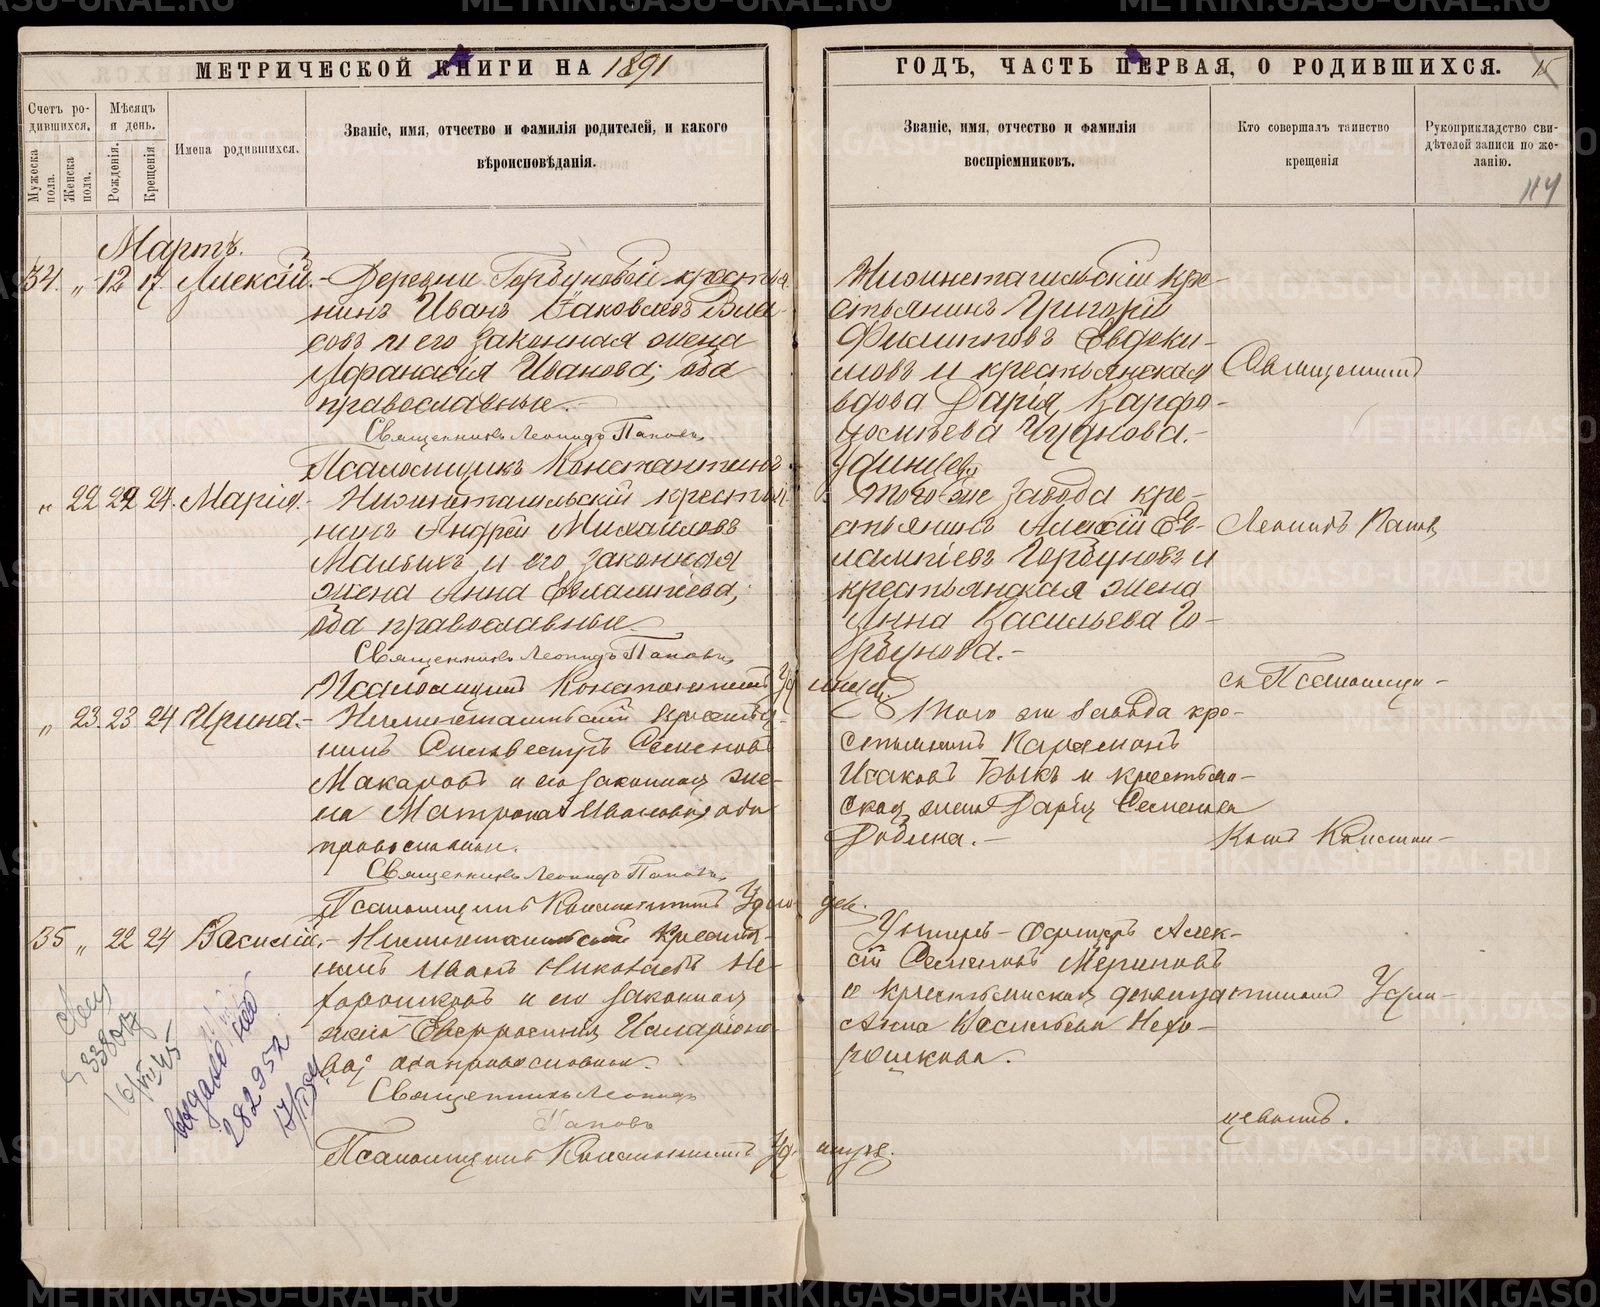 МЕТРИЧЕСКОЙ КНИГИ НА 1891
ГОДЪ, ЧАСТЬ ПЕРВАЯ, О РОДИВШИХСЯ.
15
Счетъ родившихся.
Мѣсяцъ и день.
Мужеска пола.
Женска пола.
Рожденія.
Крещенія
Имена родившихся.
Званіе, имя, отчество и фамилія родителей, и какого
вѣроисповѣданія.
Званіе, имя, отчество и фамилія
воспріемниковъ.
Кто совершалъ таинство
крещенія
Рукоприкладство сви-
дѣтелей записи по же-
ланію.
114
Мартъ.
34. „ 12 17. Алексій. - Деревни Горбуновой крестья
нинъ Иванъ Яковлевъ Вла-
совъ и его законная жена
Афанасія Иванова; оба
православные.
Священникъ Леонидъ Паповъ
Псаломщикъ Константинъ
Нижнетагильскій кре-
стьянинъ Григорій
Филипповъ Евдоки-
мовъ и крестьянская
вдова Дарія Карфо-
Чуднова. -
Удинцев
Священник
„ 22 22 24. Марія. - Нижнетагильскій крестья
нинъ Андрей Михайловъ
Малыхъ и его законная
жена Анна Евлампіева;
оба православные.
Священникъ Леонидъ Паповъ
Псаломщикъ Константинъ Удинцев
того же завода кре-
стьянинъ Алексій Ев-
лампіевъ Горбуновъ и
крестьянская жена
Анна Васильева Го-
рбунова. -
Леонидъ Папов
съ Псаломщи-
„ 23. 23 24 Ирина. - Нижнетагильскій крестья-
нинъ Сильвестръ Семеновъ
Макаровъ и его законная же-
на Матрона Иванова, оба
православные.
Священникъ Леонидъ Паповъ
Псаломщикъ Константинъ Удинцев.
Того же завода кре-
стьянинъ Парамонъ
Исаковъ Быкъ и крестьян-
ская жена Дарія Семенова
Добина. -
комъ Констан-
35 „ 22 24 Василій, - Нижнетагильскій крестья-
нинъ Иванъ Николаевъ Не-
хорошковъ и его законная
жена Евфросинія Иларіоно-
ва; оба православные.
Священникъ Леонидъ
Паповъ
Псаломщикъ Константинъ Удинцев.
Унтеръ-Офицеръ Алек-
сій Семеновъ Мериновъ
и крестьянская девица
Анна Васильева Нехо-
рошкова.
тиномъ Удин-
цевымъ.
выдано
282952